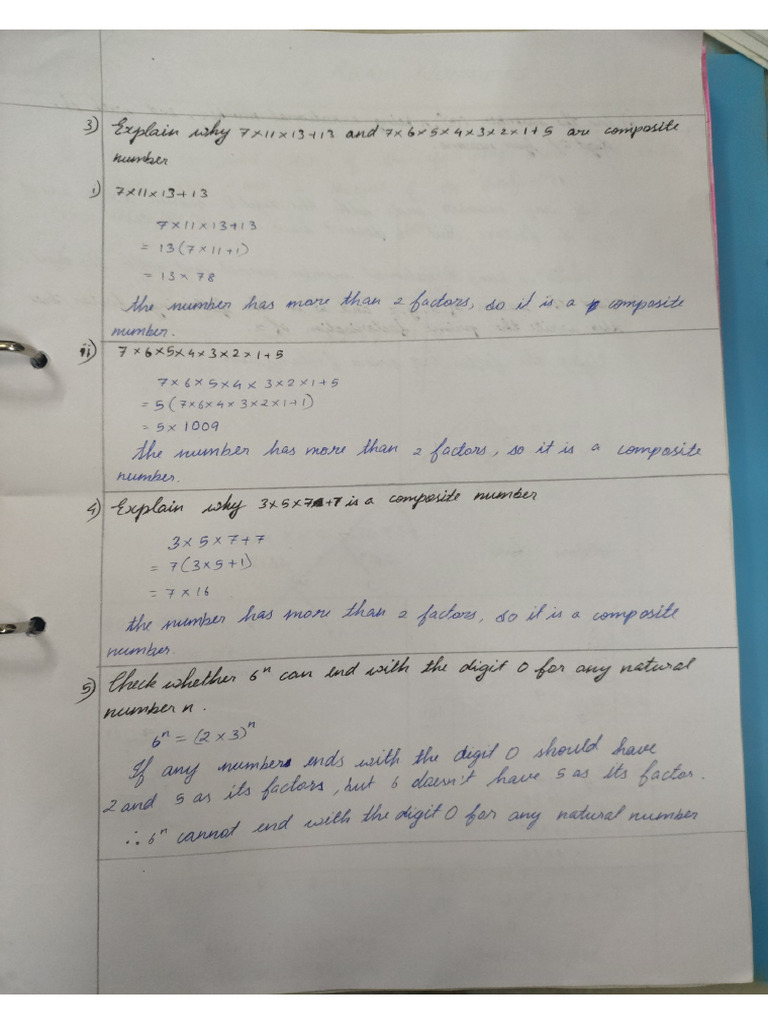 3) Explain why 7×11×13+13 and 7×6×5×4×3×2×1+5 are composite
number
i) 7×11×13+13
7×11×13+13
= 13(7×11+1)
= 13×78
the number has more than 2 factors, so it is a composite
number.
ii) 7×6×5×4×3×2×1+5
7×6×5×4×3×2×1+5
= 5(7×6×4×3×2×1+1)
= 5×1009
the number has more than 2 factors, so it is a composite
number.
4) Explain why 3×5×7+7 is a composite number
3×5×7+7
= 7(3×5+1)
= 7×16
the number has more than 2 factors, so it is a composite
number.
5) Check whether 6ⁿ can end with the digit 0 for any natural
number n.
6ⁿ = (2×3)ⁿ
If any number ends with the digit 0 should have
2 and 5 as its factors, but 6 doesn't have 5 as its factor.
∴ 6ⁿ cannot end with the digit 0 for any natural number